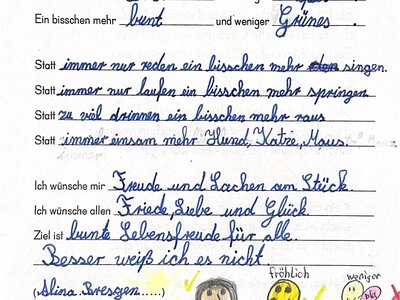 Ein bisschen mehr bunt und weniger Grünes.
Statt immer nur reden ein bisschen mehr singen.
Statt immer nur laufen ein bisschen mehr springen
Statt zu viel drinnen ein bisschen mehr raus
Statt immer einsam mehr Hund, Katze, Maus.
Ich wünsche mir Freude und Lachen am Stück.
Ich wünsche allen Friede, Liebe und Glück.
Ziel ist bunte Lebensfreude für alle.
Besser weiß ich es nicht.
(Alina Bresgen.....)
fröhlich
weniger